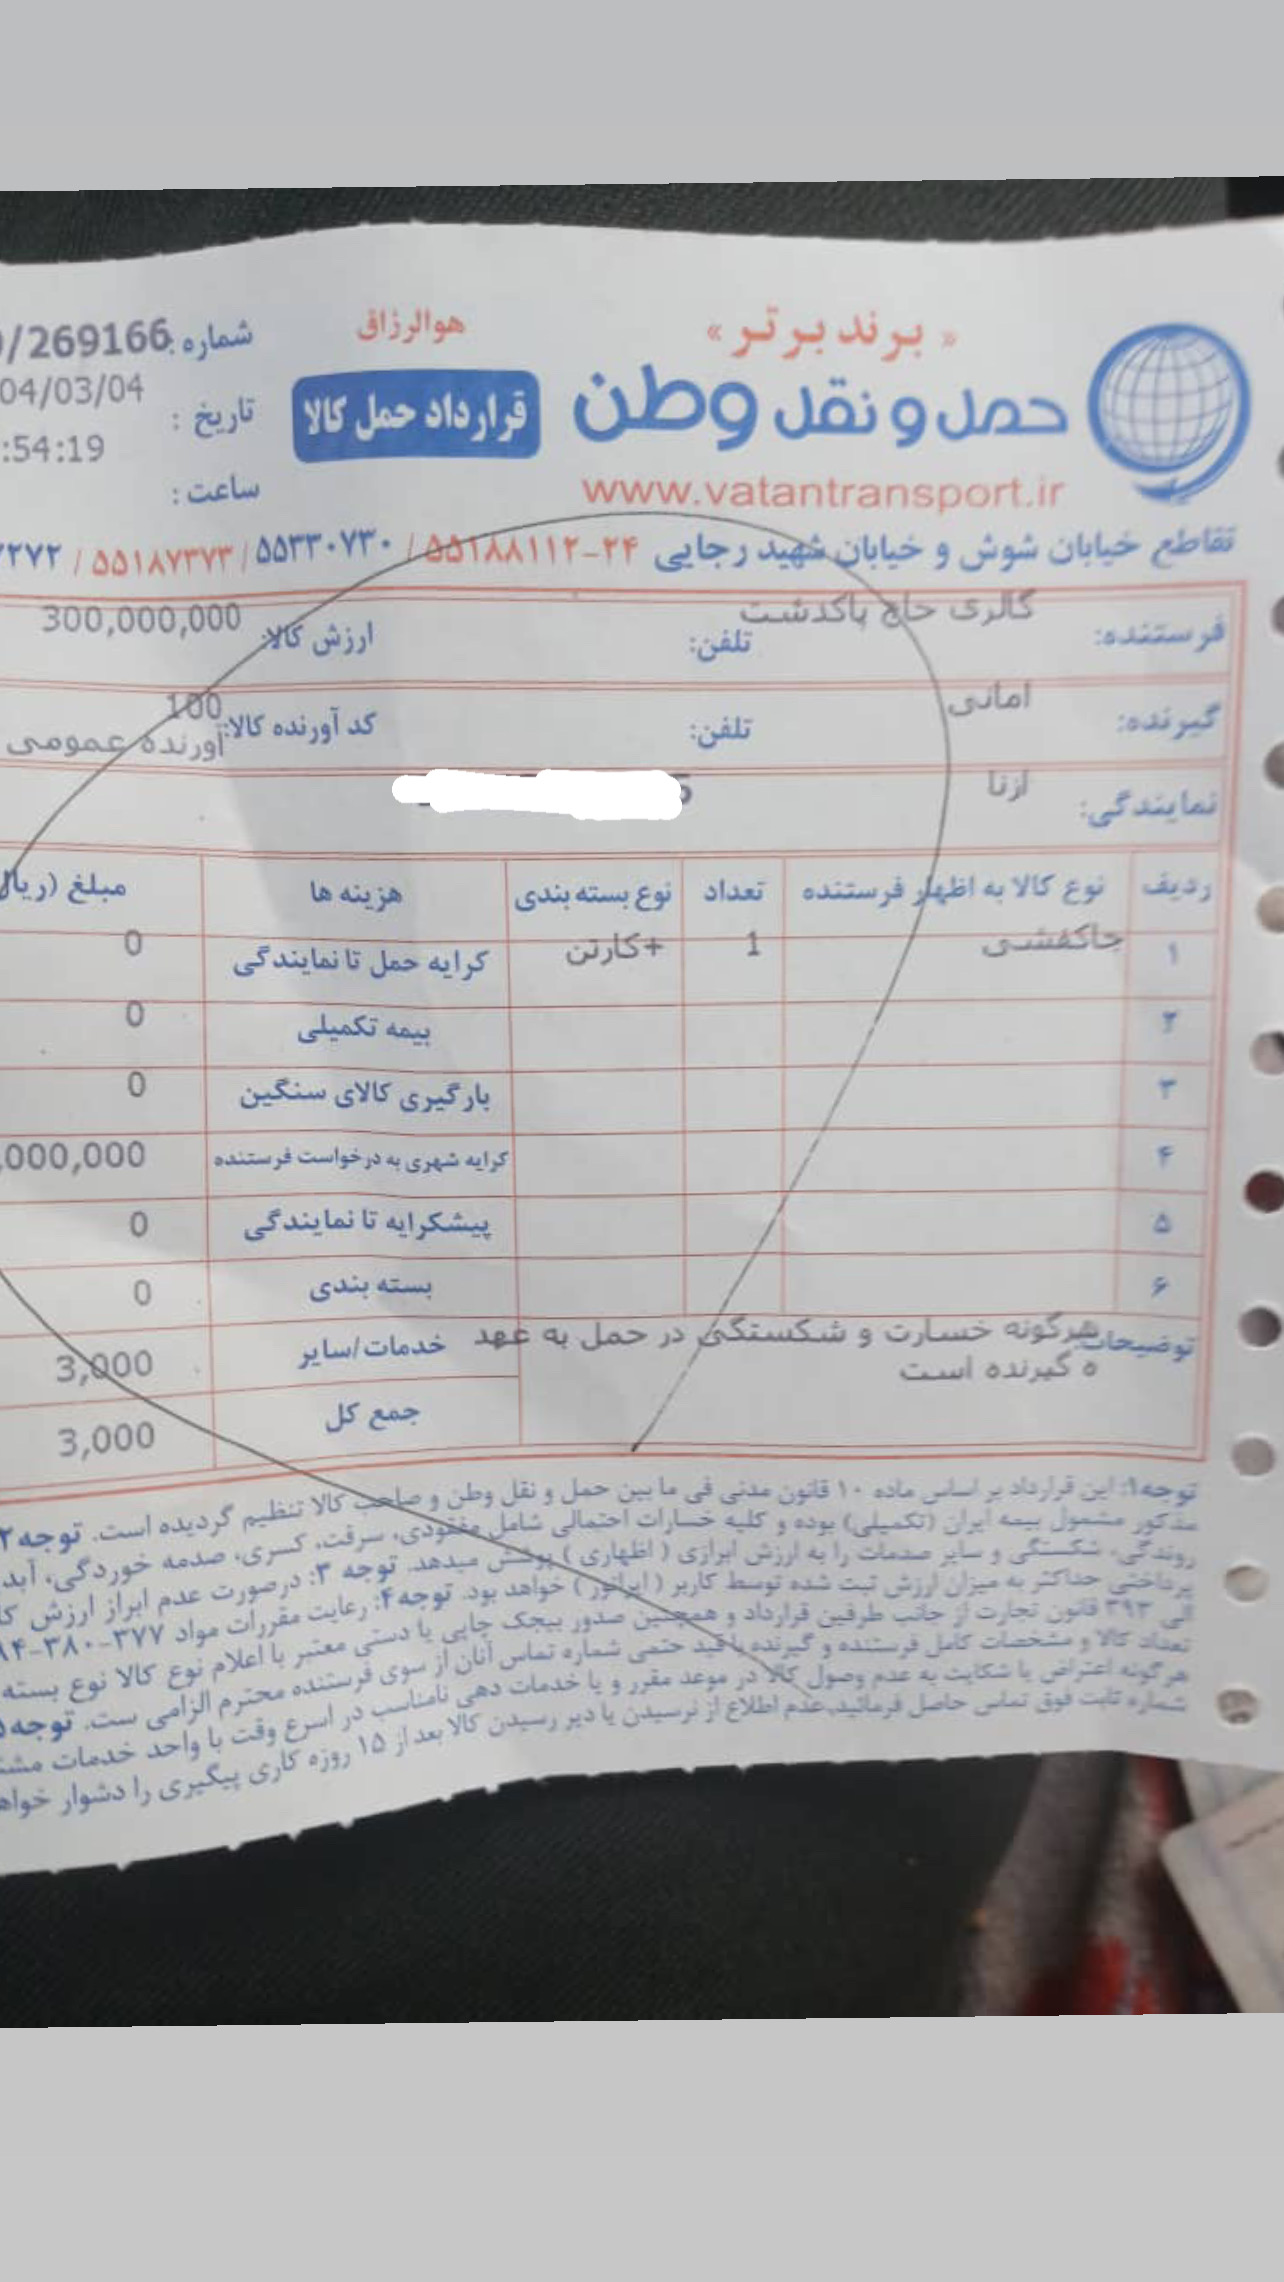 « برند برتر »
هوالرزاق
شماره: /269166
حمل و نقل وطن
قرارداد حمل کالا
تاریخ: 04/03/04
www.vatantransport.ir
ساعت: :54:19
تقاطع خیابان شوش و خیابان شهید رجایی ۲۴-۵۵۱۸۸۱۱۲ / ۵۵۳۳۰۷۳۰ / ۵۵۱۸۷۳۷۳ / ۲۲۷۲
فرستنده: گالری حاج پاکدشت تلفن: ارزش کالا: 300,000,000
گیرنده: امانی تلفن: کد آورنده کالا: 100
آورنده عمومی
نمایندگی: ازنا
ردیف نوع کالا به اظهار فرستنده تعداد نوع بسته بندی هزینه ها مبلغ (ریال
۱ جاکفشی 1 کارتن+ کرایه حمل تا نمایندگی 0
۲ بیمه تکمیلی 0
۳ بارگیری کالای سنگین 0
۴ کرایه شهری به درخواست فرستنده ,000,000
۵ پیشکرایه تا نمایندگی 0
۶ بسته بندی 0
توضیحات: هرگونه خسارت و شکستگی در حمل به عهد خدمات/سایر 3,000
ه گیرنده است
جمع کل 3,000
توجه۱: این قرارداد بر اساس ماده ۱۰ قانون مدنی فی ما بین حمل و نقل وطن و صاحب کالا تنظیم گردیده است. توجه ۲
مذکور مشمول بیمه ایران (تکمیلی) بوده و کلیه خسارات احتمالی شامل مفقودی، سرقت، کسری، صدمه خوردگی، آبد
روندگی، شکستگی و سایر صدمات را به ارزش ابرازی ( اظهاری ) پوشش میدهد. توجه ۳: درصورت عدم ابراز ارزش کا
پرداختی حداکثر به میزان ارزش ثبت شده توسط کاربر ( اپراتور ) خواهد بود. توجه۴: رعایت مقررات مواد ۳۷۷-۳۸۰-۹۴
الی ۳۹۳ قانون تجارت از جانب طرفین قرارداد و همچنین صدور بیجک چاپی یا دستی معتبر با اعلام نوع کالا نوع بسته
تعداد کالا و مشخصات کامل فرستنده و گیرنده با قید حتمی شماره تماس آنان از سوی فرستنده محترم الزامی ست. توجه۵
هر گونه اعتراض یا شکایت به عدم وصول کالا در موعد مقرر و یا خدمات دهی نامناسب در اسرع وقت با واحد خدمات مشت
شماره ثابت فوق تماس حاصل فرمائید،عدم اطلاع از نرسیدن یا دیر رسیدن کالا بعد از ۱۵ روزه کاری پیگیری را دشوار خواه